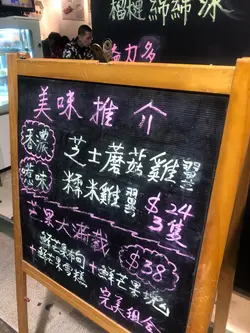 榴槤綿綿冰
力多
美味推介
香濃 芝士蘑菇雞翼
惹味 糯米雞翼 $24
3隻
芒果大滿載 $38
鮮芒果布甸
+鮮芒果雪糕 +鮮芒果塊
完美組合